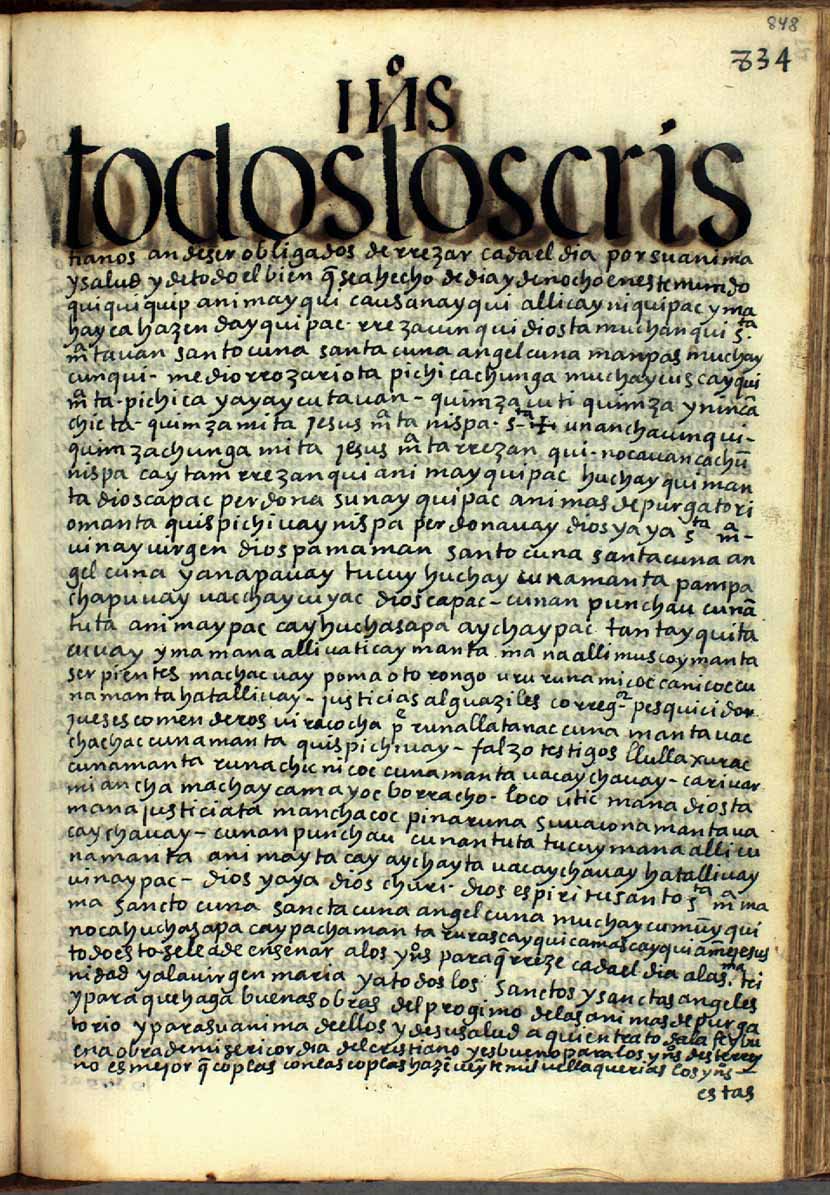 848
834
IHS
todos los cris
tianos an de ser obligados de rrezar cada el dia por su anima
y salud y de todo el bien q̃ sea hecho de dia y de nocho en este mundo
quiquiquip animayqui causanayqui allicayniquipac y ma
hayca hazendayquipac. rrezacunqui diosta muchanqui s.ta
m̃tauan santocuna santacuna angelcuna manpas muchay
cunqui - medio rrozariota pichicachunga muchaycuscayqui
m̃ta. pichica yayaycutauan - quimza cuti quimza ynincã
chicta. quimza mita jesus m̃ta nispa. s.ta ✝ unanchacunqui -
quimza chunga mita jesus m̃ta rrezanqui - nocauancachũ
nispa caytam rrezanqui animayquipac huchayquiman
ta dios capac perdonasunayquipac animas de purgatori
omanta quispichiuay nispa perdonauay dios yaya s.ta m̃ -
uinay uirgen diospa maman santocuna santacuna an
gelcuna yanapauay tucuy huchaycunamanta pampa
chapuuay uacchaycuyac dios capac - cunan punchau cunã
tuta animaypac cay huchasapa aychaypac tantayquita
cuuay y mamana alli uaticaymanta mana alli muscoymanta
serpientes machacuay poma otorongo uru runamicoc canicoccu
namanta hatalliuay - justicias alguaziles correg.or pesquicidor
jueses comenderos uiracocha p.e runallatanaccunamanta uac
chachaccunamanta quispichiuay - falzo testigos llulla xurac
cunamanta runa chicnicoccunamanta uacaychauay - cariuar
mi ancha machaycamayoc borracho. loco utic mana diosta
mana justiciata manchacoc pinaruna suuaconamanta ua
caychauay - cunan punchau cunan tuta tucuy mana allicu
namanta animayta cay aychayta uacaychauay hatalliuay
uinaypac - dios yaya dios churi. dios espiritu santo s.ta m̃ ma
ma sanctocuna sanctacuna angelcuna muchaycumuyqui
noca huchasapa cay pachamanta rurascayqui camascayqui amẽ jesus
todo esto se le a de ensenar a los yn.os para q̃ rreze cada el dia a la s.ma tri
nidad y a la uirgen maria y a todos los sanctos y sanctas angeles
y para que haga buenas obras del progimo de las animas de purga
torio y para su anima dellos y de su salud aqui entrato de la fe y bu
ena obra de misericordia del cristiano y es bueno para los yn.os deste rrey
no es mejor q̃ coplas con las coplas haze uey te mil uellaquerias los yn.os -
estas